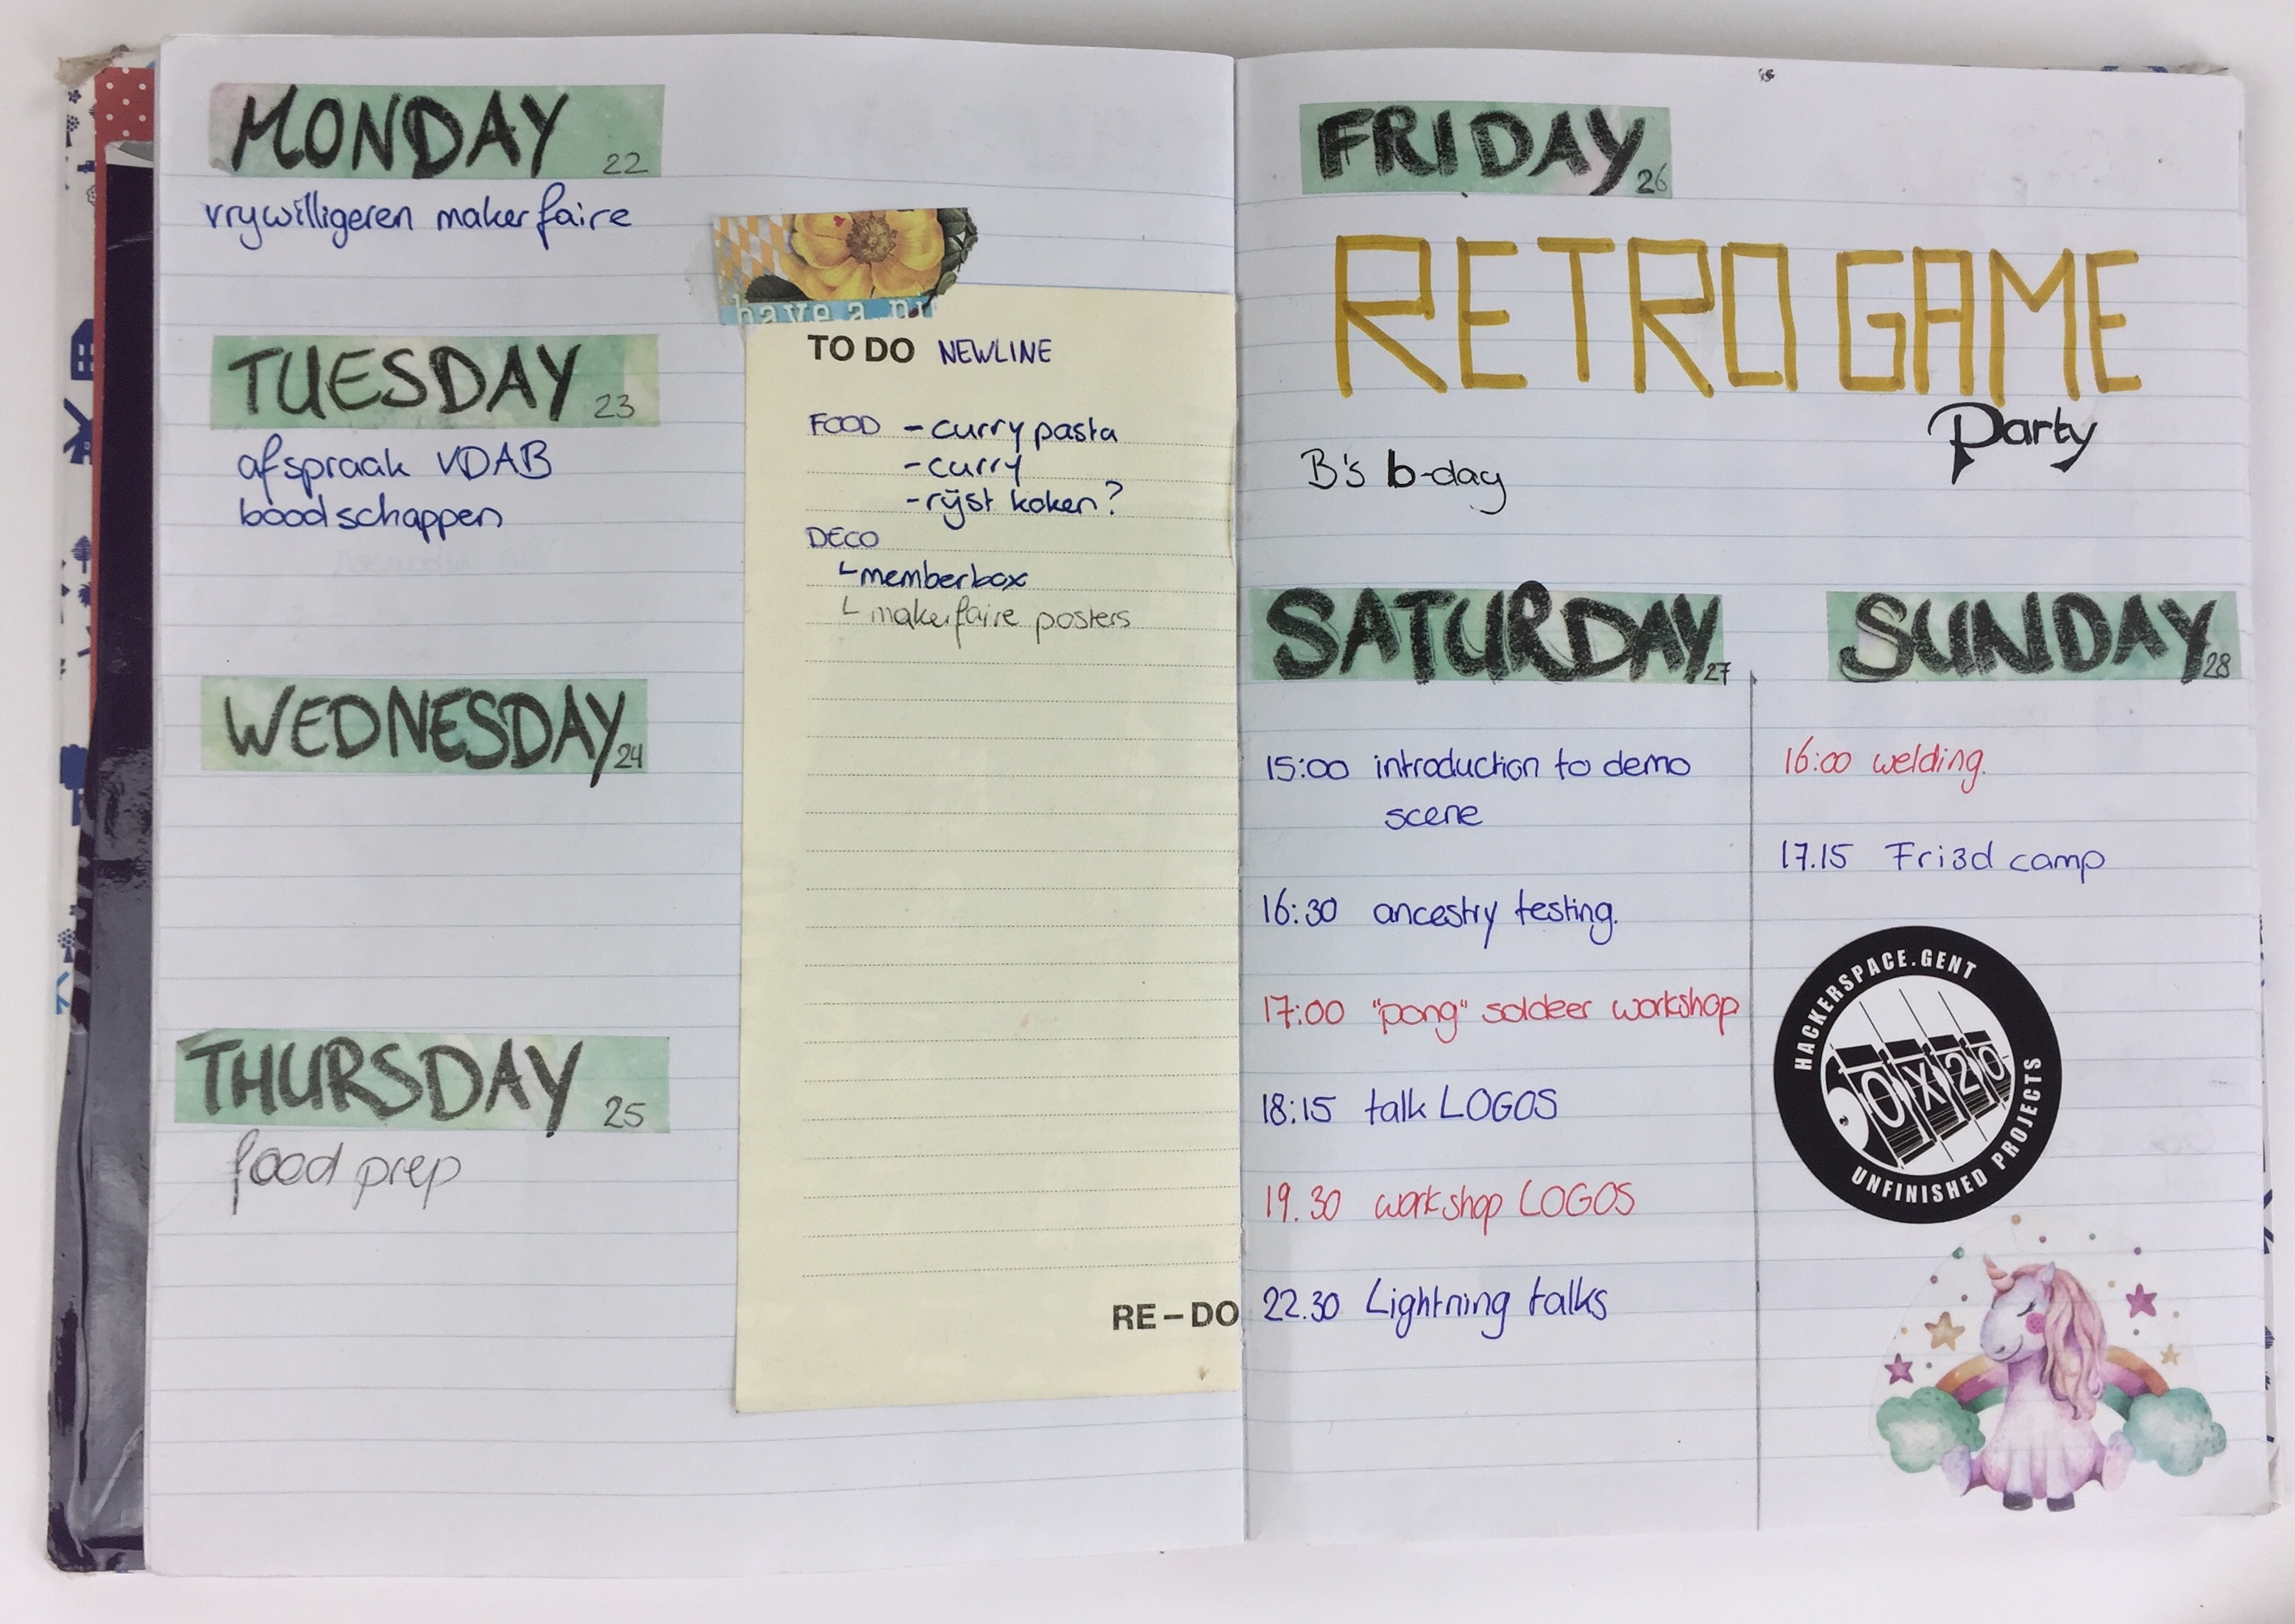 MONDAY 22
vrywilligeren makerfaire
TUESDAY 23
afspraak VDAB
boodschappen
WEDNESDAY 24
THURSDAY 25
food prep
have a
TO DO NEWLINE
FOOD - curry pasta
- curry
- rijst koken?
DECO
memberbox
makerfaire posters
RE-DO
FRIDAY 26
RETRO GAME
Party
B's b-day
SATURDAY 27
15:00 introduction to demo
scene
16:30 ancestry testing.
17:00 "pong" soldeer workshop
18:15 talk LOGOS
19.30 workshop LOGOS
22.30 Lightning talks
SUNDAY 28
16:00 welding.
17.15 Fri3d camp
HACKERSPACE.GENT
0X20
UNFINISHED PROJECTS